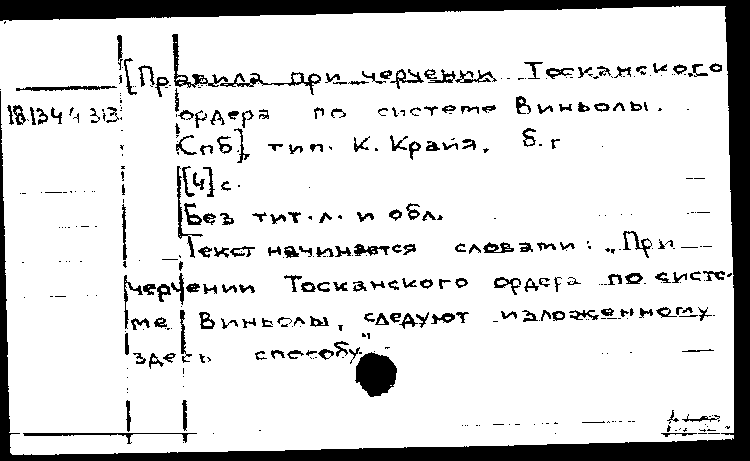 [Правила при черчении Тосканского
18.134.4.313 ордера по системе Виньолы.
Спб], тип. К. Крайя, б.г
[4] с.
Без тит.л. и обл.
Текст начинается словами: „При
черчении Тосканского ордера по систе-
ме Виньолы, следуют изложенному
здесь способу"